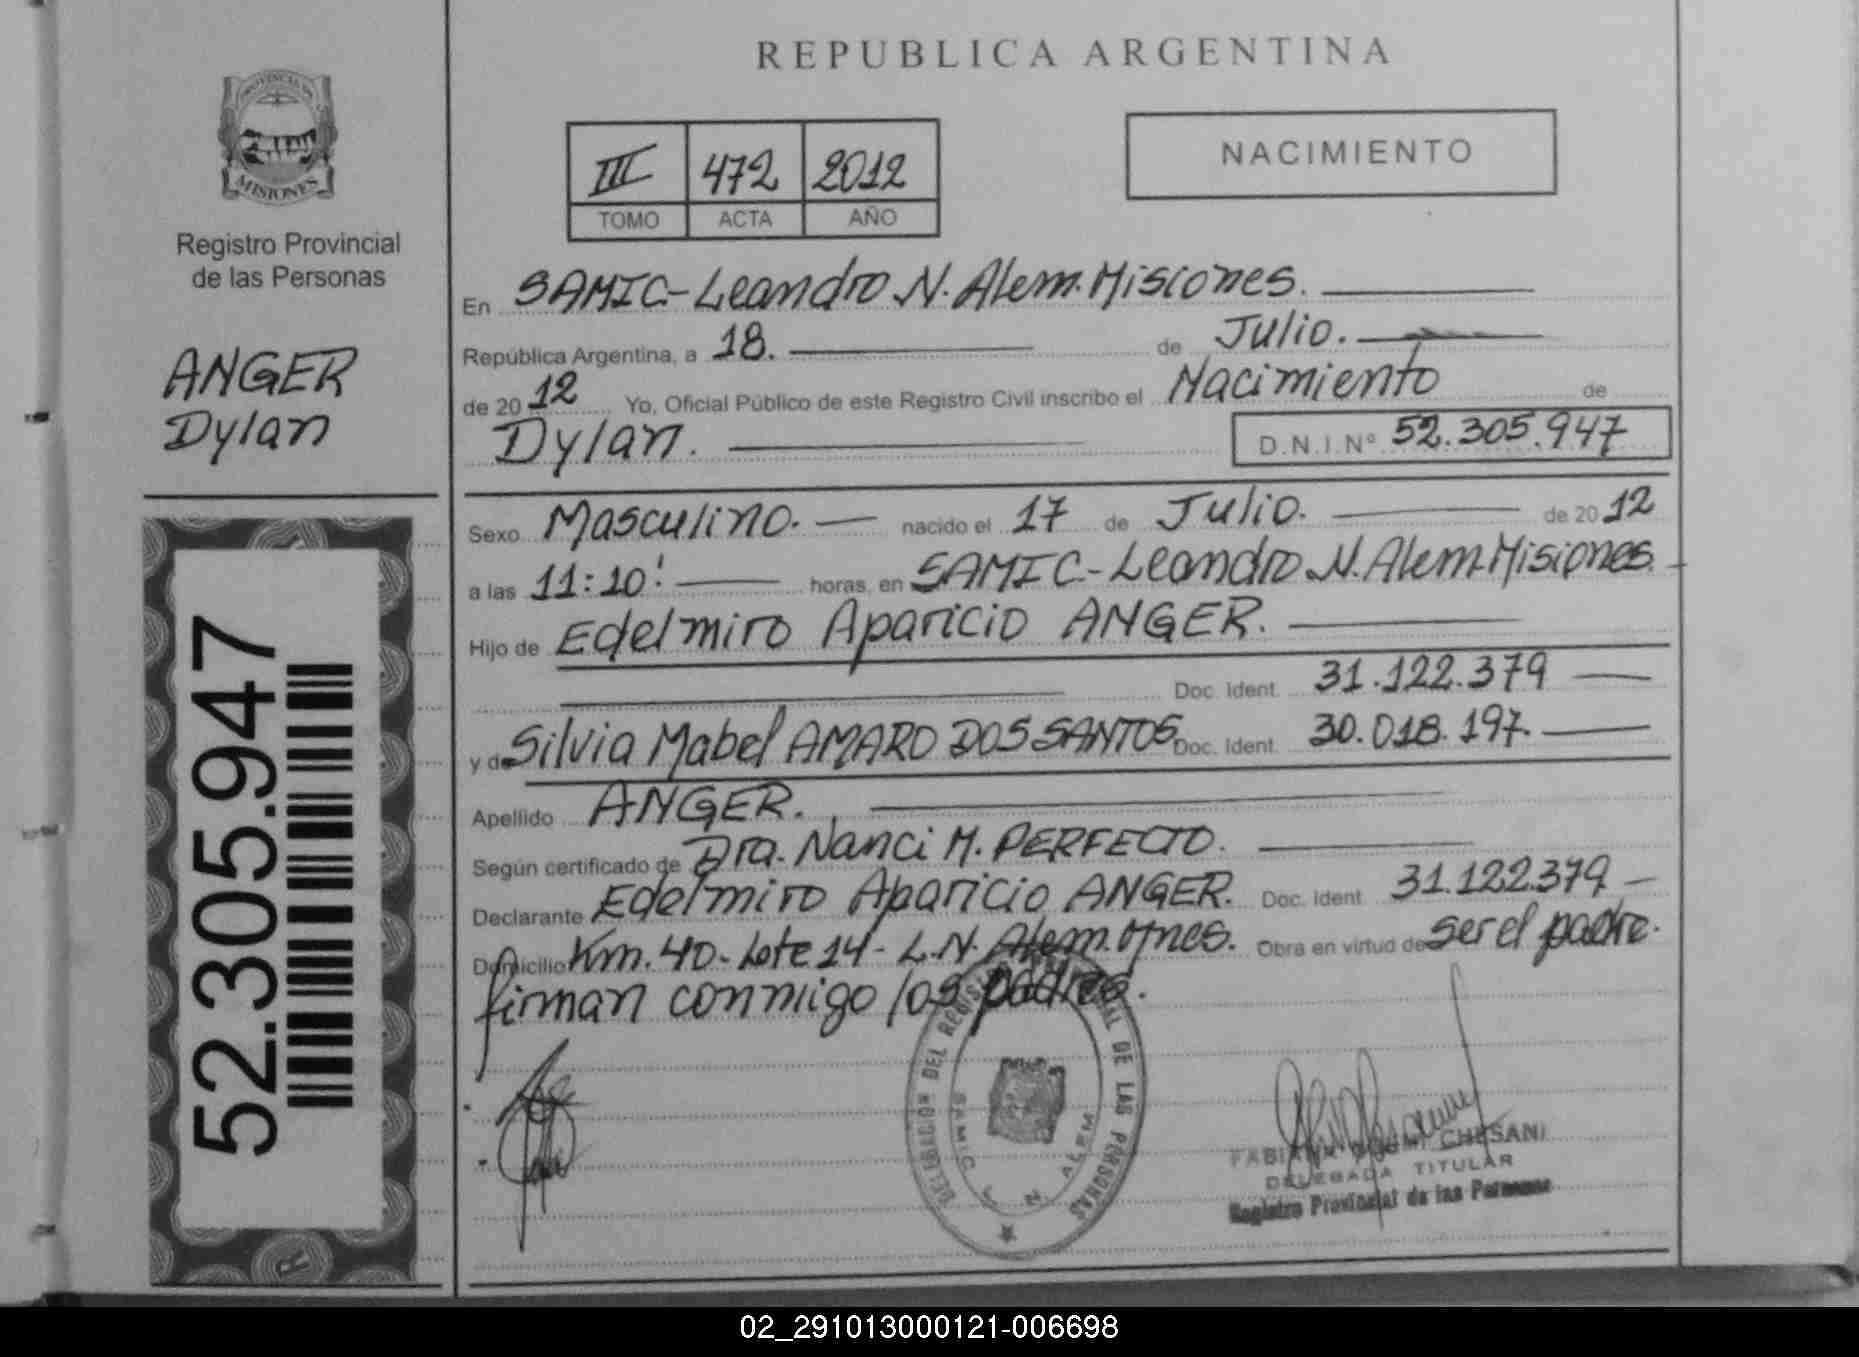 REPUBLICA ARGENTINA
PROVINCIA DE
MISIONES
Registro Provincial
de las Personas
ANGER
Dylan
52.305.947
III 472 2012
TOMO ACTA AÑO
NACIMIENTO
En SAMIC-Leandro N. Alem. Misiones.
República Argentina, a 18. de Julio.
de 2012 Yo, Oficial Público de este Registro Civil inscribo el Nacimiento de
Dylan. D.N.I.Nº 52.305.947
Sexo Masculino. nacido el 17 de Julio. de 2012
a las 11:10' horas, en SAMIC-Leandro N. Alem-Misiones.
Hijo de Edelmiro Aparicio ANGER.
Doc. Ident. 31.122.379
y de Silvia Mabel AMARO DOS SANTOS Doc. Ident. 30.018.197.
Apellido ANGER.
Según certificado de Dra. Nanci M. PERFECTO.
Declarante Edelmiro Aparicio ANGER. Doc. Ident. 31.122.379
Domicilio Km. 40- Lote 14- L.N. Alem. Mnes. Obra en virtud de ser el padre.
firman conmigo los padres.
DELEGACION DEL REGISTRO PROVINCIAL DE LAS PERSONAS
SAMIC L. N. ALEM
CHESANI
DELEGADA TITULAR
Registro Provincial de las Personas
02_291013000121-006698